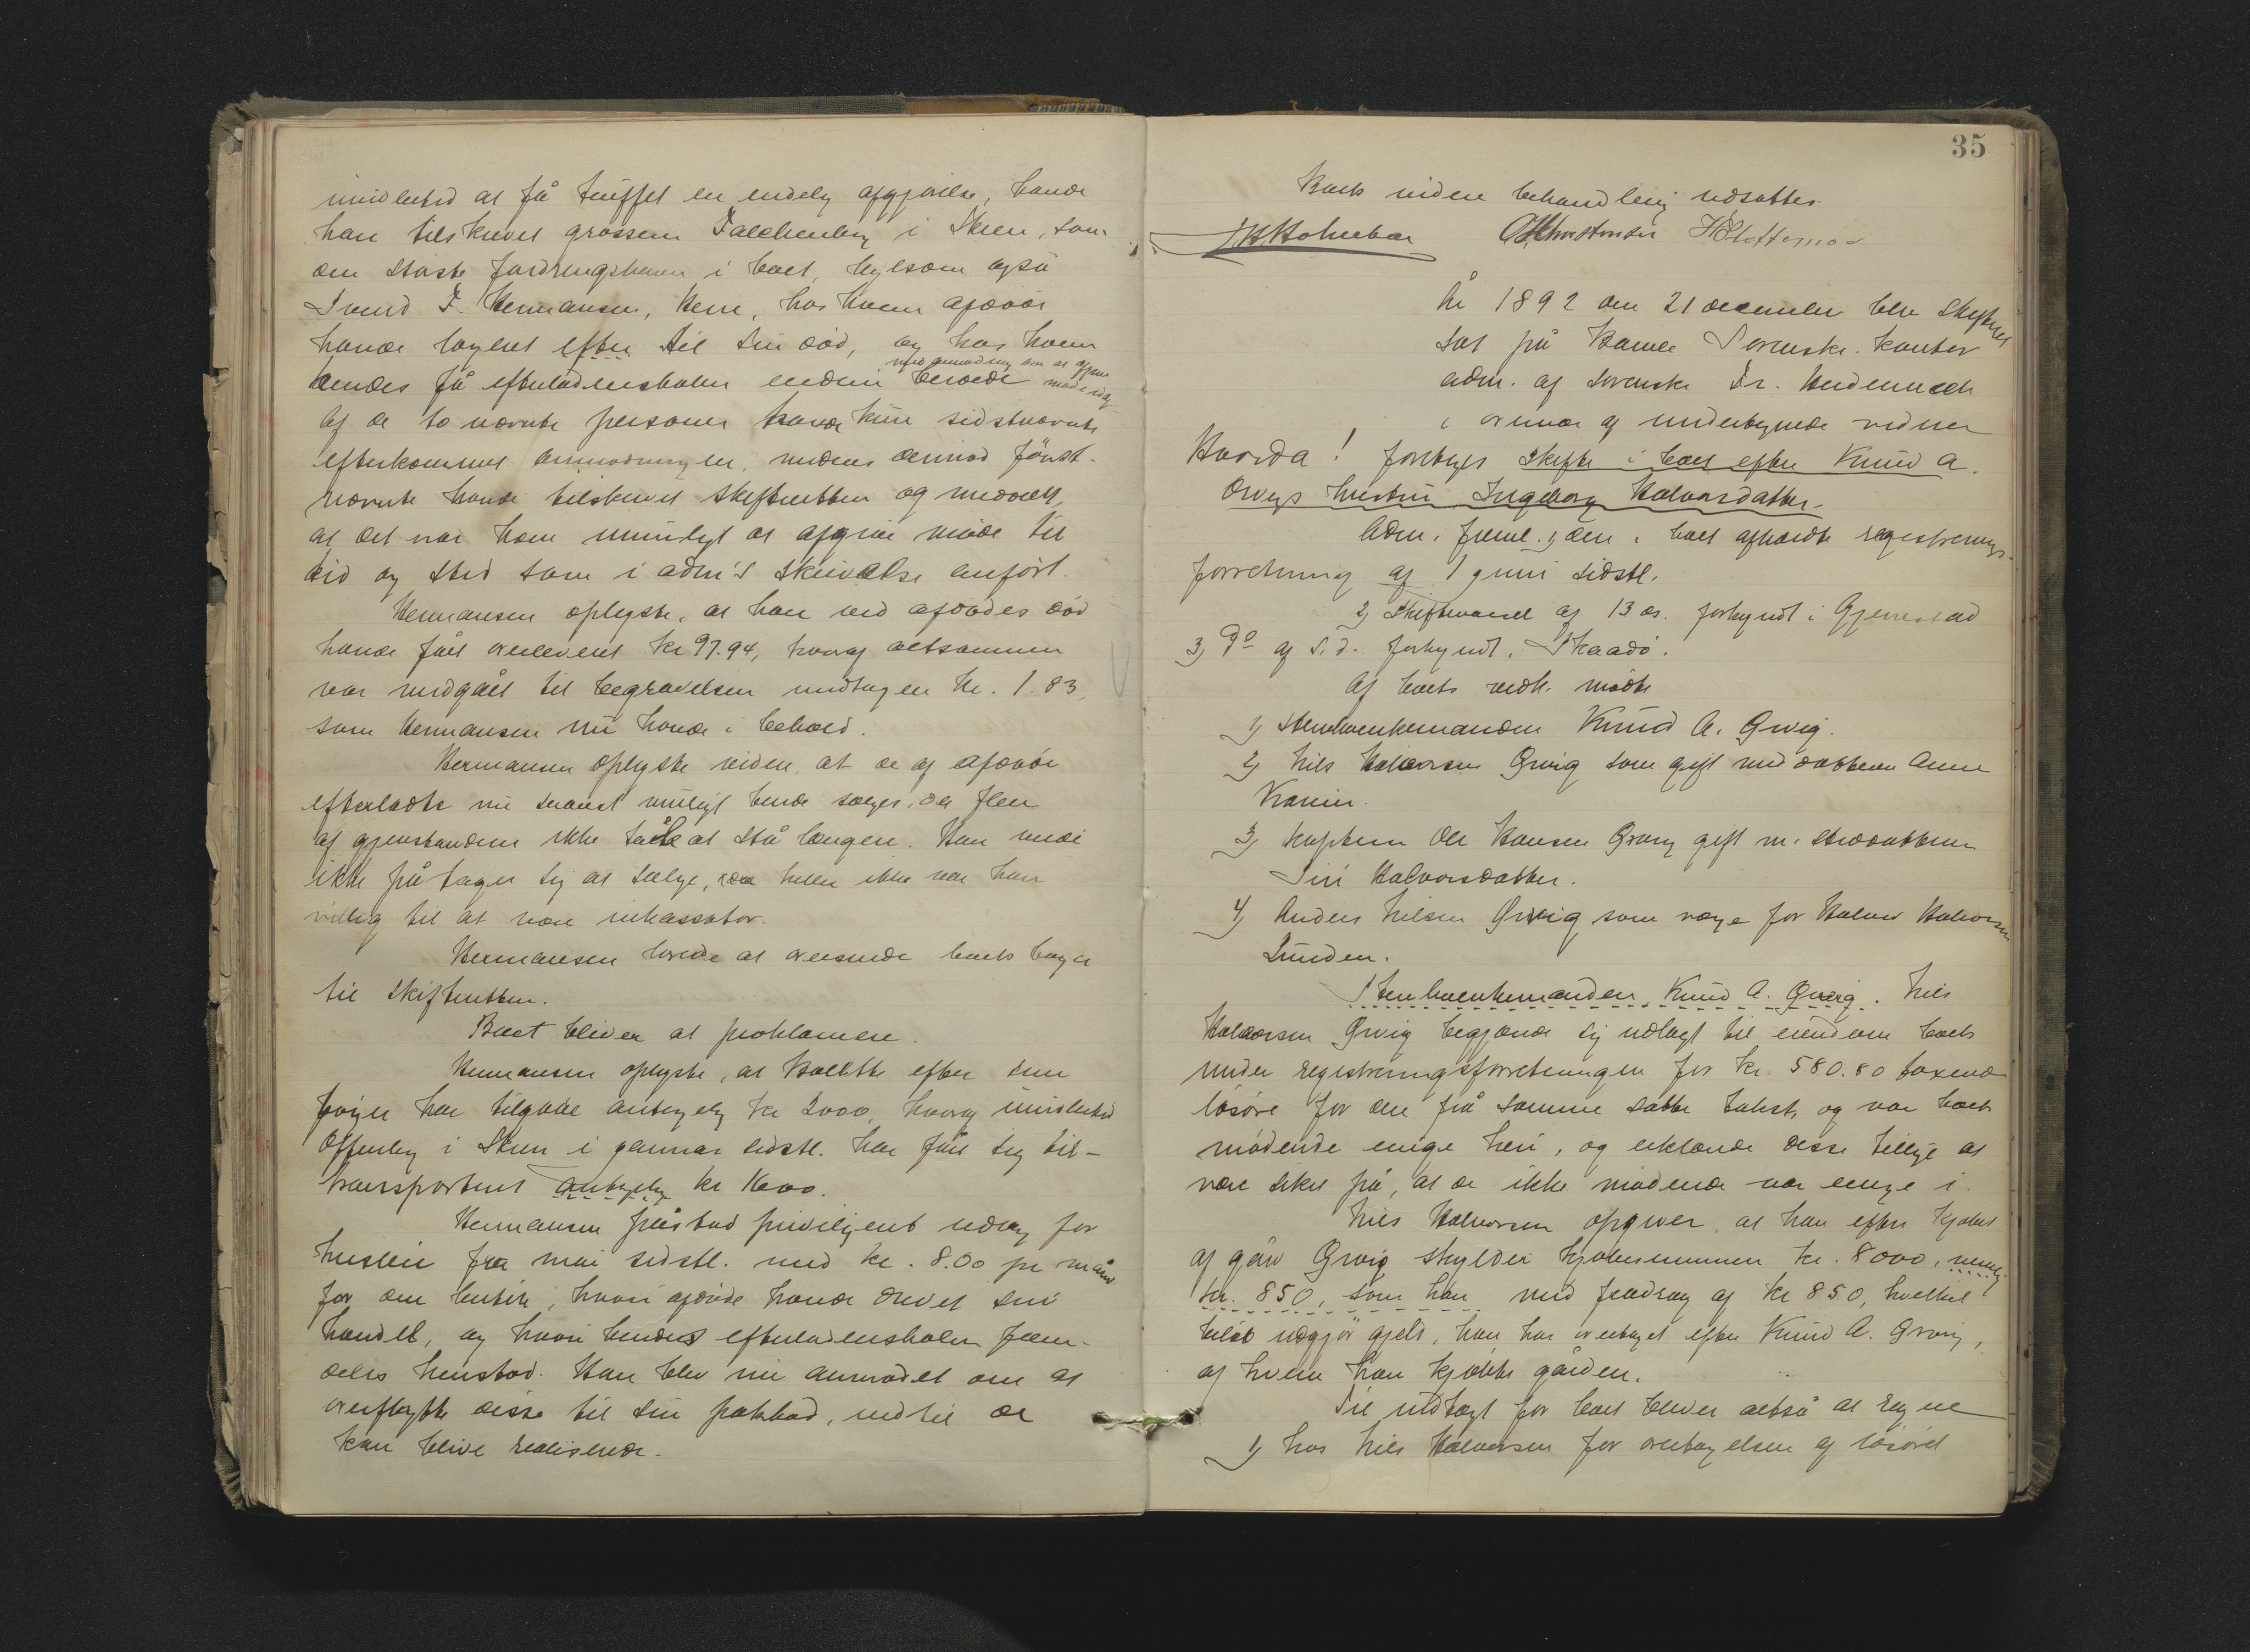 imidlertid at få truffet en endelig afgjörelse, havde
han tilskrevet grosserer Falchenberg i Skien, som
den störste fordringshaver i boet, ligesom også
Svend F. Hermansen, Herre, hos hvem afdöde
havde logeret efter til sin död, og hos hvem
med anmodning om at give
möde idag.
hendes få efterladenskaber endnu beroede
Af de to nævnte personer havde kun sidstnævnte
efterkommet anmodningen, medens derimod först-
nævnte havde tilskrevet skifteretten og meddelt,
at det var ham umuligt at afgive möde til
tid og sted som i adm's skrivelse anfört.
Hermansen oplyste, at han ved afdödes död
havde fåt overleveret kr 97.94, hvoraf altsammen
var medgået til begravelsen undtagen kr. 1.83,
som Hermansen nu havde i behold.
Hermansen oplyste videre, at de af afdöde
efterladte nu snarest muligt burde sælges, da flere
af gjenstandene ikke tålte at stå længere. Han vilde
ikke påtage sig at sælge, heller ikke var han
villig til at være inkassator.
Hermansen lovede at oversende boets böger
til skifteretten.
Boet bliver at proklamere.
Hermansen oplyste, at Boet efter sine
böger har tilgode antagelig kr 2000, hvoraf imidlertid
i Skien i januar sidstl. har fåt sig til-
transporteret antagelig kr 1600.
Hermansen påstod priviligeret udlæg for
husleie fra mai sidstl. med kr. 8.00 pr måned
for den butik, hvori afdöde havde drevet sin
handel, og hvori hendes efterladenskaber frem-
deles henstod. Han blev nu anmodet om at
overflytte disse til sin pakbod, indtil de
kan blive realiserede.
35
Boets videre behandling udsattes.
År 1892 den 21 december blev skifteret
sat på Bamle Sorenskr. kontor
adm. af sorenskr Fr.
i overvær af undertegnede vidner
Hvorda! foretoges skifte i boet efter Knud A.
Örvigs hustru Ingeborg Halvorsdatter.
Adm. freml. 1) den i boet afholdte registrerings-
forretning af 1 juni sidstl.
2) Skiftevarsel af 13 ds. forkyndt i Gjerrestad
3) Do af s.d. forkyndt i Skaadö.
Af boets vedk. mödte
1) Stervboenkemanden Knud A. Örvig.
2) Nils Halvorsen Örvig som gift med datteren Anne
Karin.
3) kaptein Ole Hansen Örvig gift m. steddatteren
Siri Halvorsdatter.
4) Anders Nilsen Örvig som værge for Halvor Halvorsen
Sunden.
Stervboenkemanden Knud A. Örvig. Nils
Halvorsen Örvig begjærede sig udlagt til eiendom boets
under registreringsforretningen for kr. 580.80 taxerede
lösöre for den på samme satte takst, og var boets
mödende enige heri, og erklærede disse tillige at
være sikre på, at de ikke mödende var enige i.
Nils Halvorsen opgiver, at han efter kjöbet
af gård Örvig skylder kjöbesummen kr. 8000, nemlig
kr. 850, som han med fradrag af kr 850, hvilket
belöb udgjör gjeld, han har overtaget efter Knud A. Örvig,
af hvem han kjöbte gården.
Til indtægt for boet bliver altså at regne
1) hos Nils Halvorsen for overtagelsen af lösöret